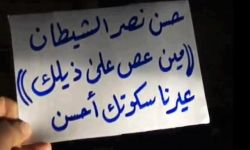 حسن نصر الشيطان
((مين عص على ذيلك))
عيرنا سكوتك أحسن